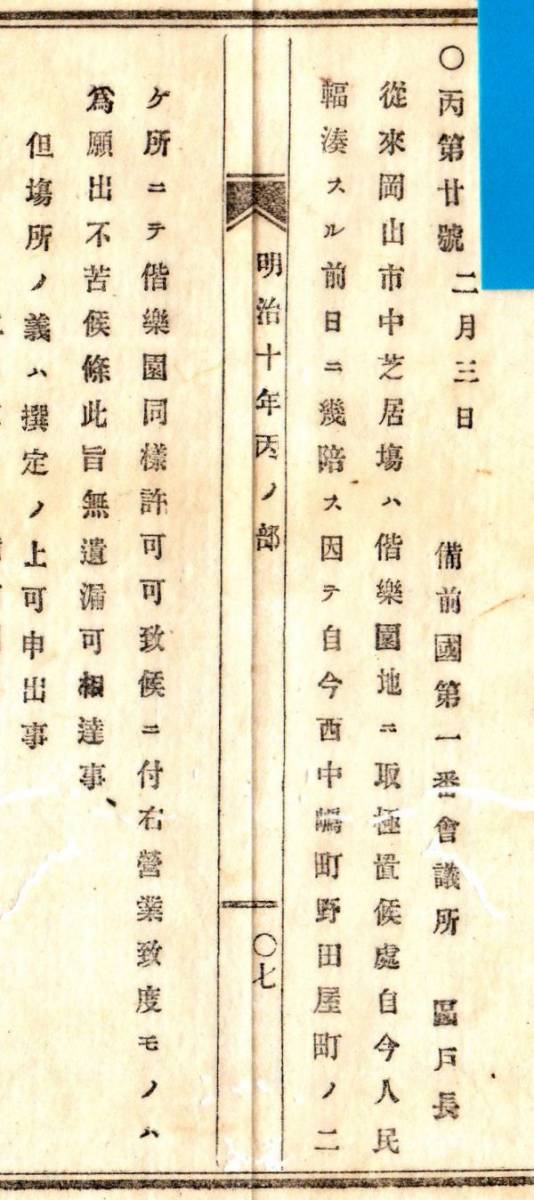 〇丙第廿號 二月三日 備前國第一番會議所 區戸長
從來岡山市中芝居塲ハ偕樂園地ニ取極置候處自今人民
輻湊スル前日ニ幾陪ス因テ自今西中嶋町野田屋町ノ二
明治十年丙ノ部 〇七
ケ所ニテ偕樂園同樣許可可致候ニ付右營業致度モノハ
爲願出不苦候條此旨無遺漏可相達事
但塲所ノ義ハ撰定ノ上可申出事